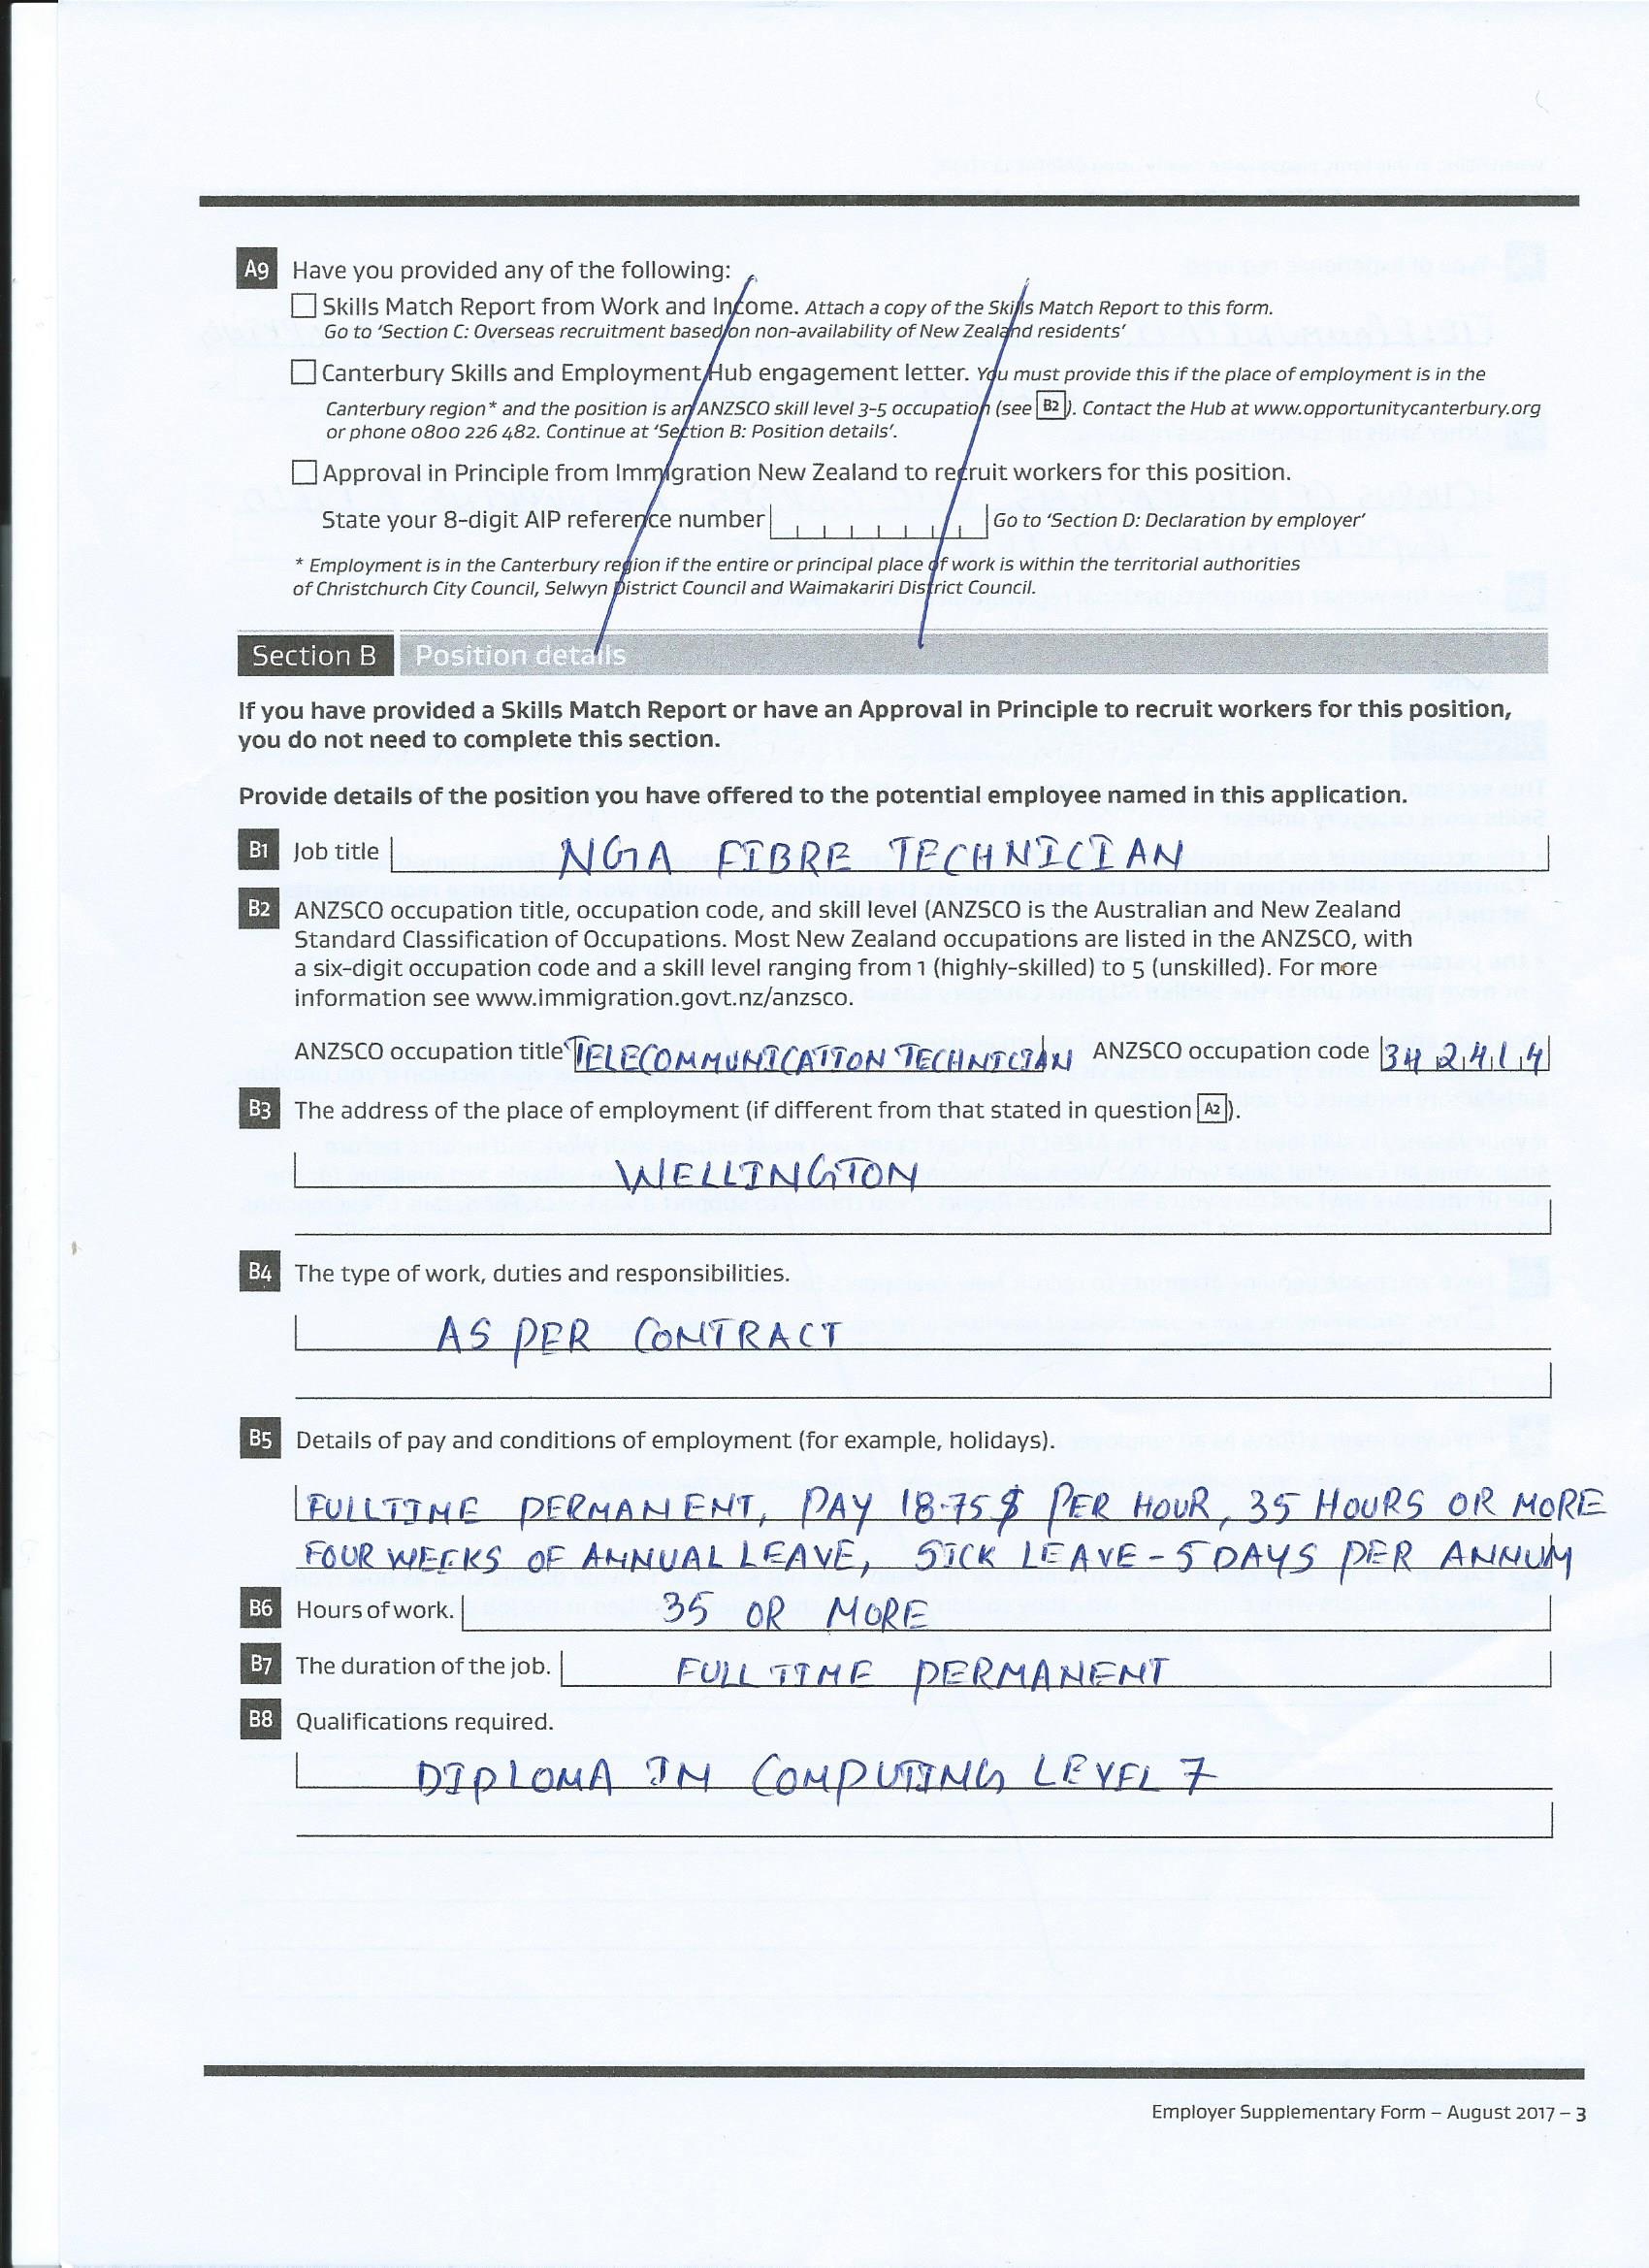 A9 Have you provided any of the following:
Skills Match Report from Work and Income. Attach a copy of the Skills Match Report to this form.
Go to 'Section C: Overseas recruitment based on non-availability of New Zealand residents'
Canterbury Skills and Employment Hub engagement letter. You must provide this if the place of employment is in the
Canterbury region* and the position is an ANZSCO skill level 3-5 occupation (see B2). Contact the Hub at www.opportunitycanterbury.org
or phone 0800 226 482. Continue at 'Section B: Position details'.
Approval in Principle from Immigration New Zealand to recruit workers for this position.
State your 8-digit AIP reference number Go to 'Section D: Declaration by employer'
* Employment is in the Canterbury region if the entire or principal place of work is within the territorial authorities
of Christchurch City Council, Selwyn District Council and Waimakariri District Council.
Section B Position details
If you have provided a Skills Match Report or have an Approval in Principle to recruit workers for this position,
you do not need to complete this section.
Provide details of the position you have offered to the potential employee named in this application.
B1 Job title NGA FIBRE TECHNICIAN
B2 ANZSCO occupation title, occupation code, and skill level (ANZSCO is the Australian and New Zealand
Standard Classification of Occupations. Most New Zealand occupations are listed in the ANZSCO, with
a six-digit occupation code and a skill level ranging from 1 (highly-skilled) to 5 (unskilled). For more
information see www.immigration.govt.nz/anzsco.
ANZSCO occupation title TELECOMMUNICATION TECHNICIAN ANZSCO occupation code 342414
B3 The address of the place of employment (if different from that stated in question A2).
WELLINGTON
B4 The type of work, duties and responsibilities.
AS PER CONTRACT
B5 Details of pay and conditions of employment (for example, holidays).
FULLTIME PERMANENT, PAY 18.75$ PER HOUR, 35 HOURS OR MORE
FOUR WEEKS OF ANNUAL LEAVE, SICK LEAVE - 5 DAYS PER ANNUM
B6 Hours of work. 35 OR MORE
B7 The duration of the job. FULL TIME PERMANENT
B8 Qualifications required.
DIPLOMA IN COMPUTING LEVEL 7
Employer Supplementary Form – August 2017 – 3